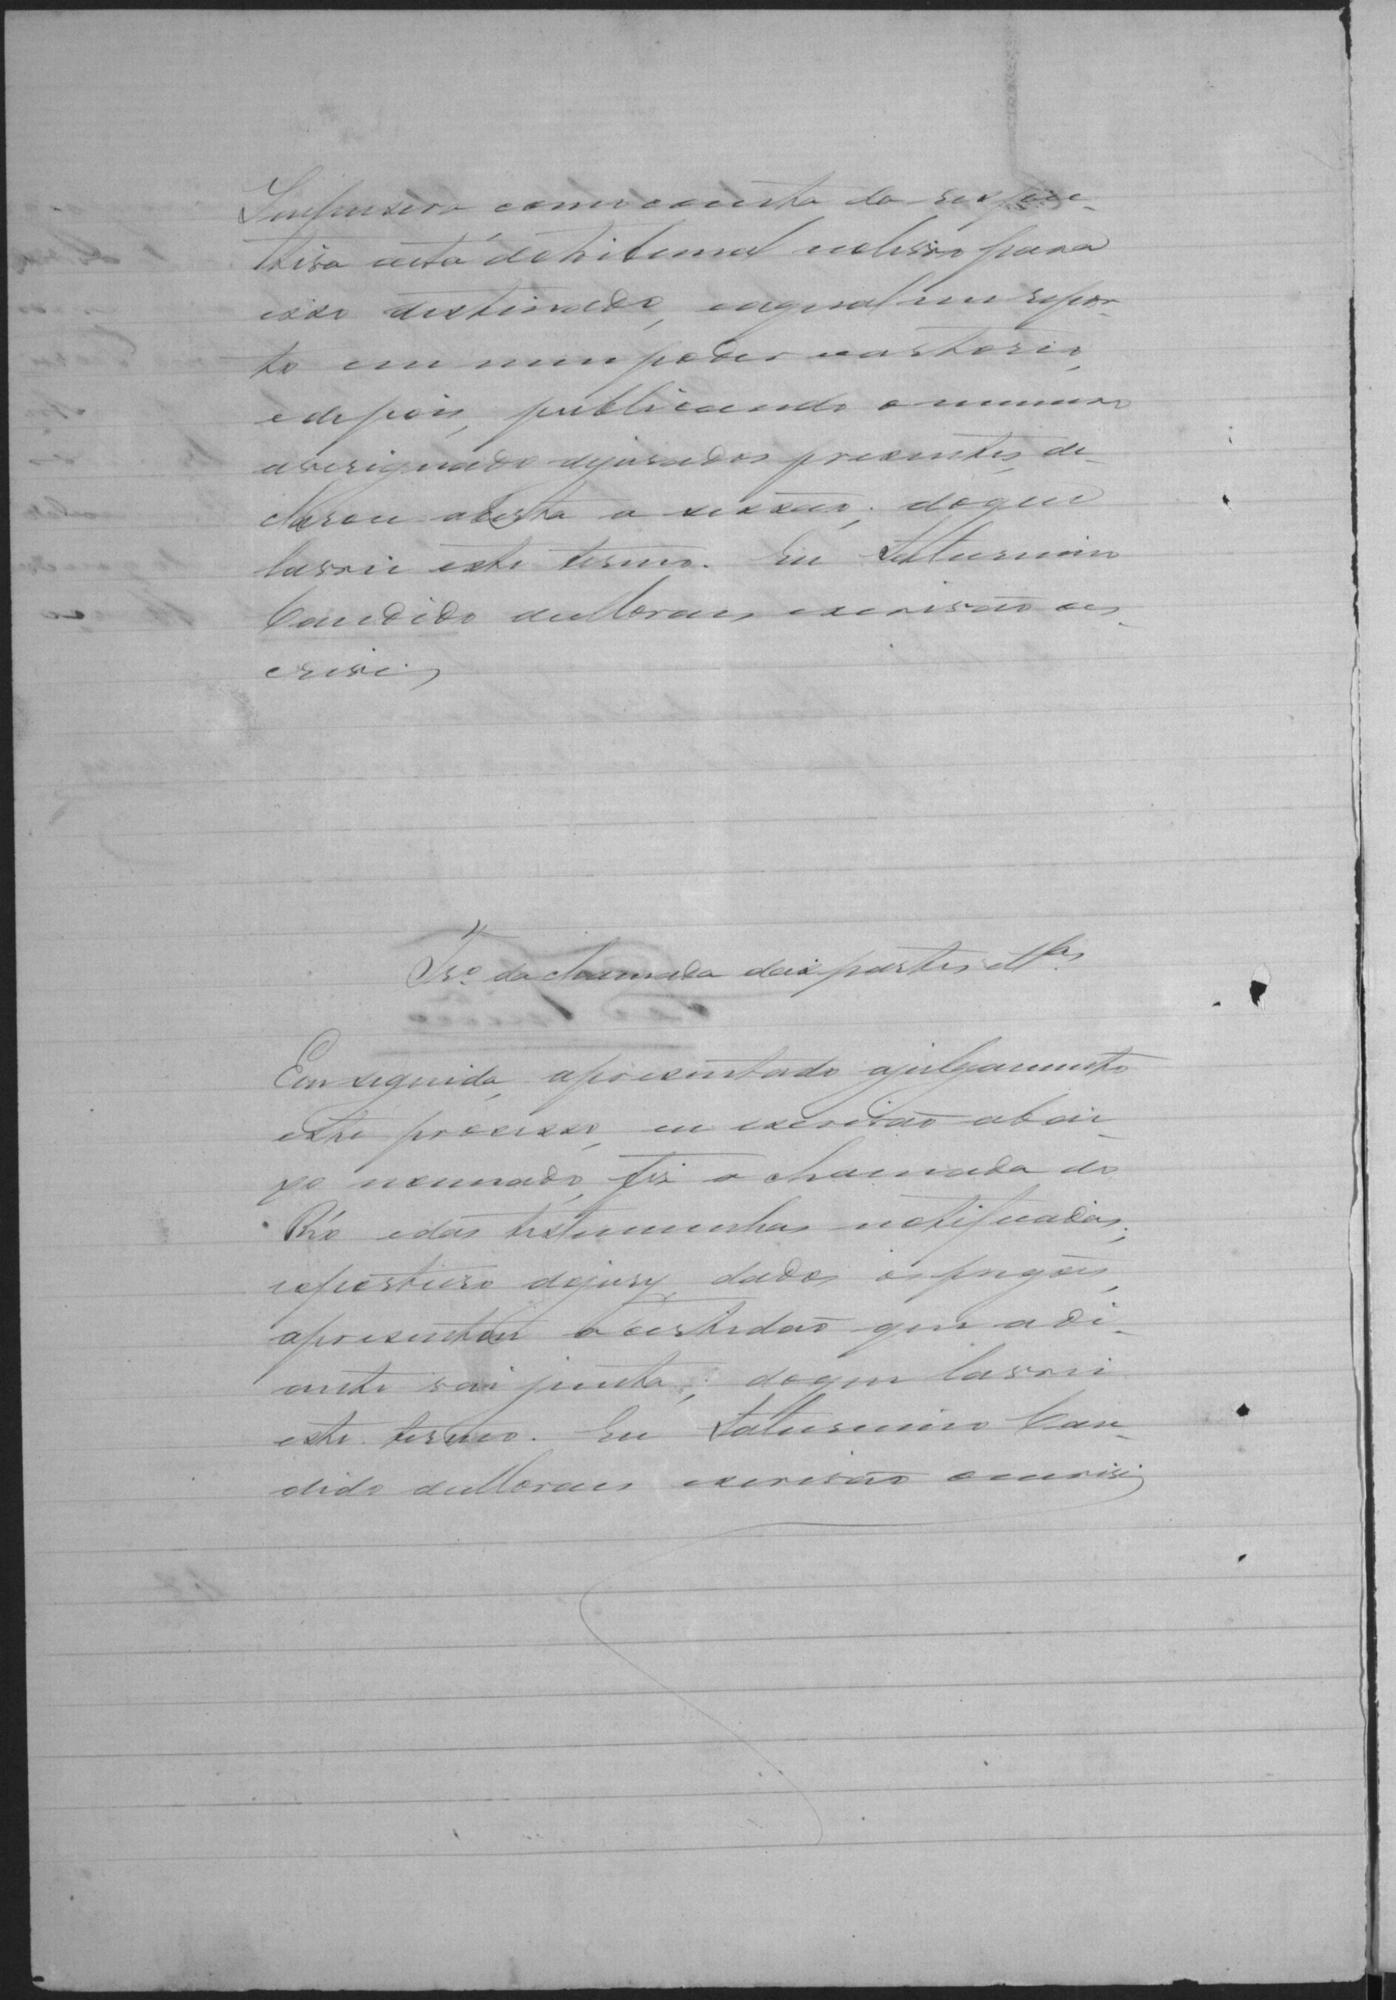 como consta da respec-
tiva acta do tribunal no livro para
isso destinado, a qual me repor-
to em meu poder e cartorio,
e depois, publicando o numero
averiguado de jurados presentes, de-
clarou aberta a sessão; do que
lavrei este termo. Eu Saturnino
Candido de Moraes, escrivão o es-
crevi
Tr.º da chamada das partes e tt.as
Em seguida, apresentado a julgamento
este processo, eu escrivão abai-
xo nomeado, fiz a chamada do
Réo e das testemunhas notificadas;
e o porteiro do jury, dados os pregões,
apresentou a certidão que adi-
ante vai junta; do que lavrei
este termo. Eu Saturnino Can-
dido de Moraes escrivão o escrevi